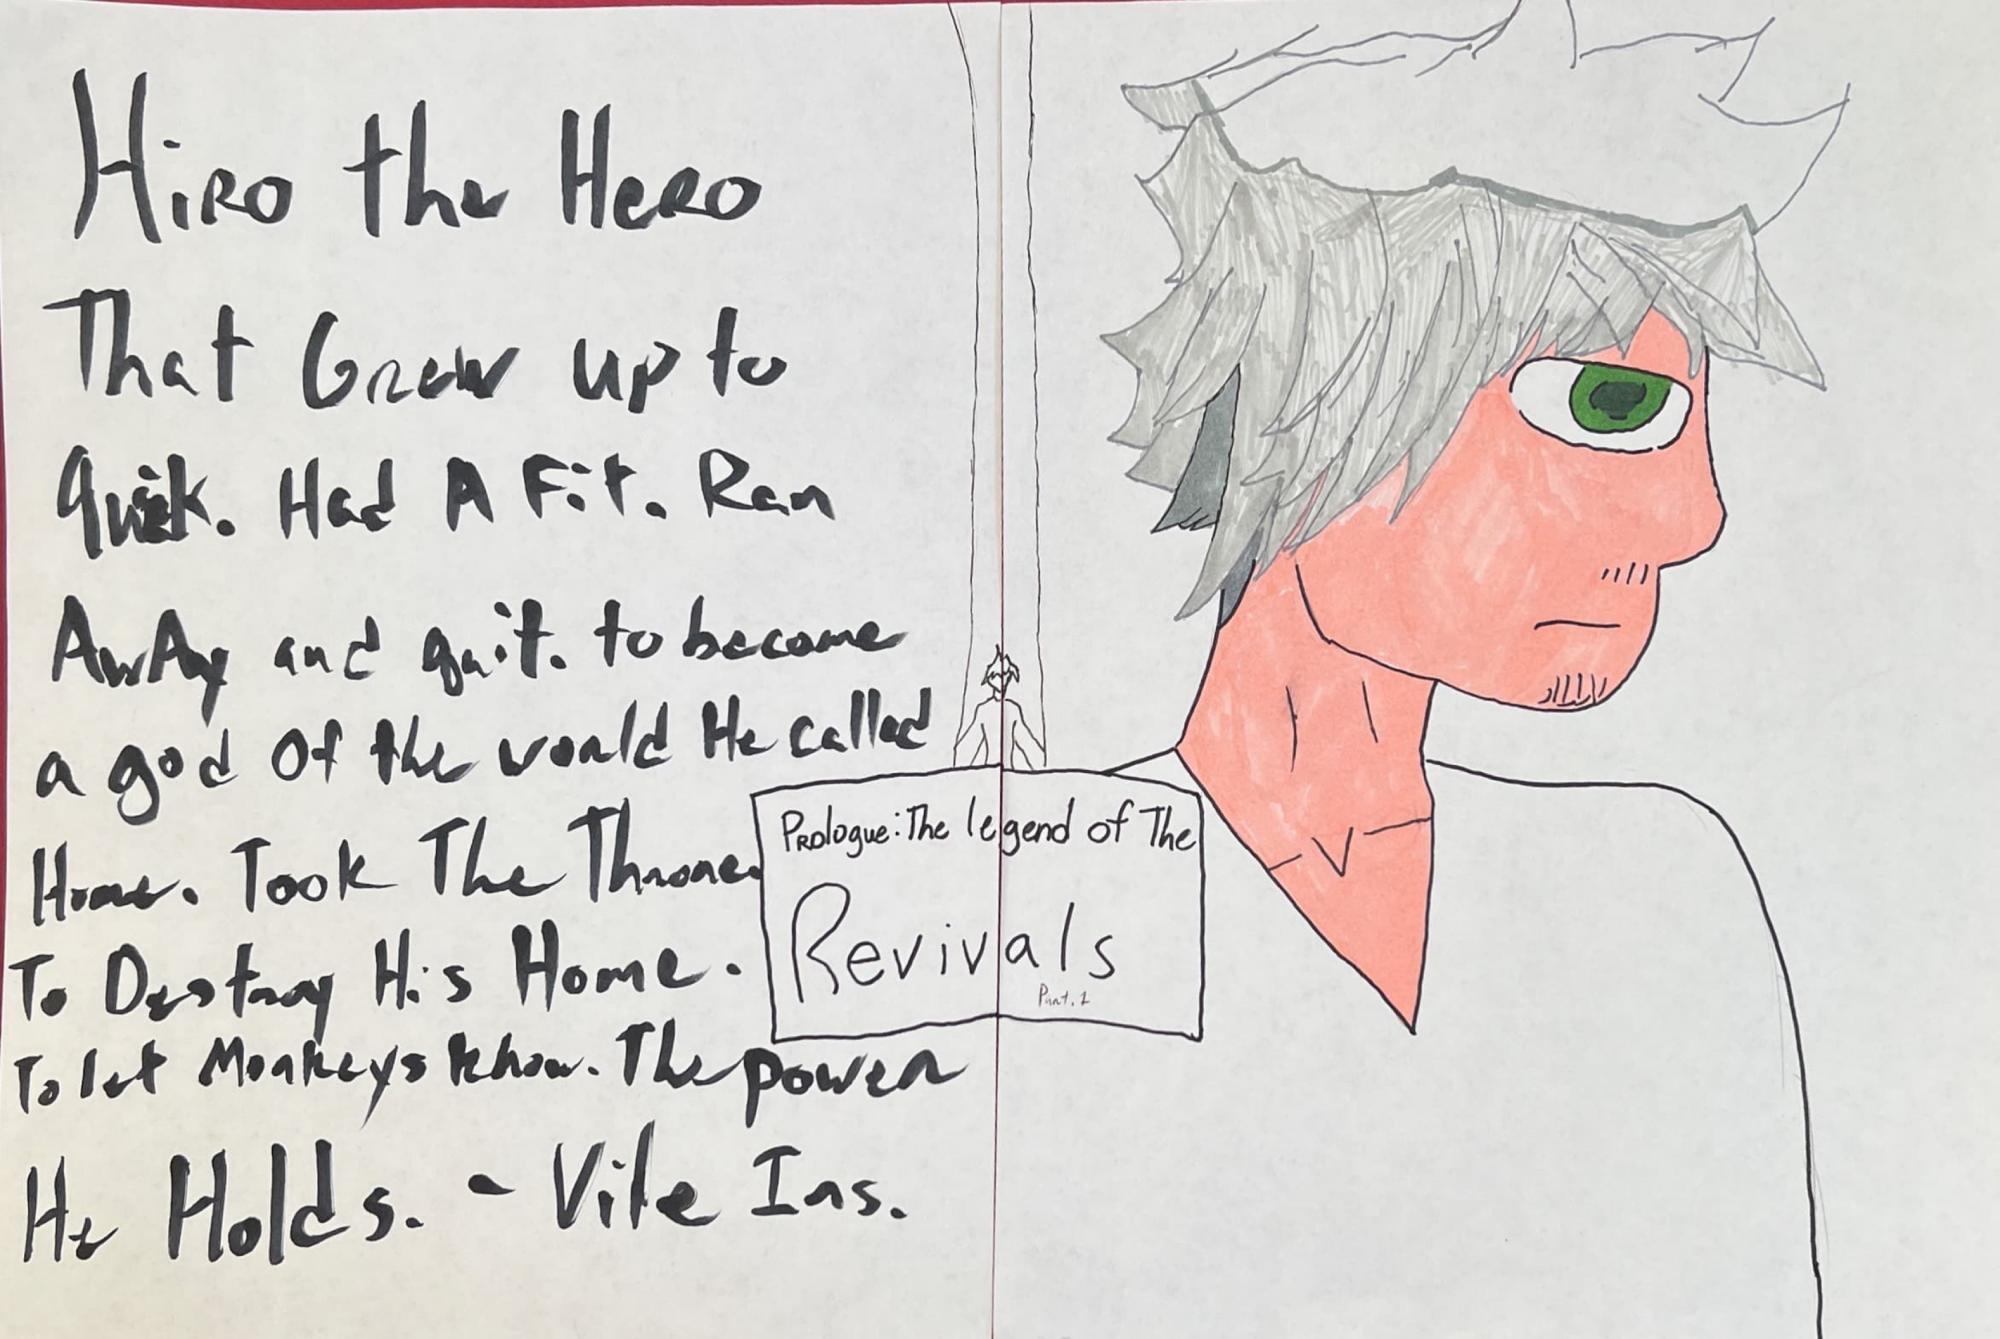 Hiro the Hero
That Grew up to
Quik. Had A Fit. Ran
AwAy and quit. to become
a god Of the world He called
Home. Took The Throne.
To Destroy His Home.
To let Monkeys know. The power
He Holds. - Vile Ins.
Prologue: The legend of The
Revivals
Part. 1